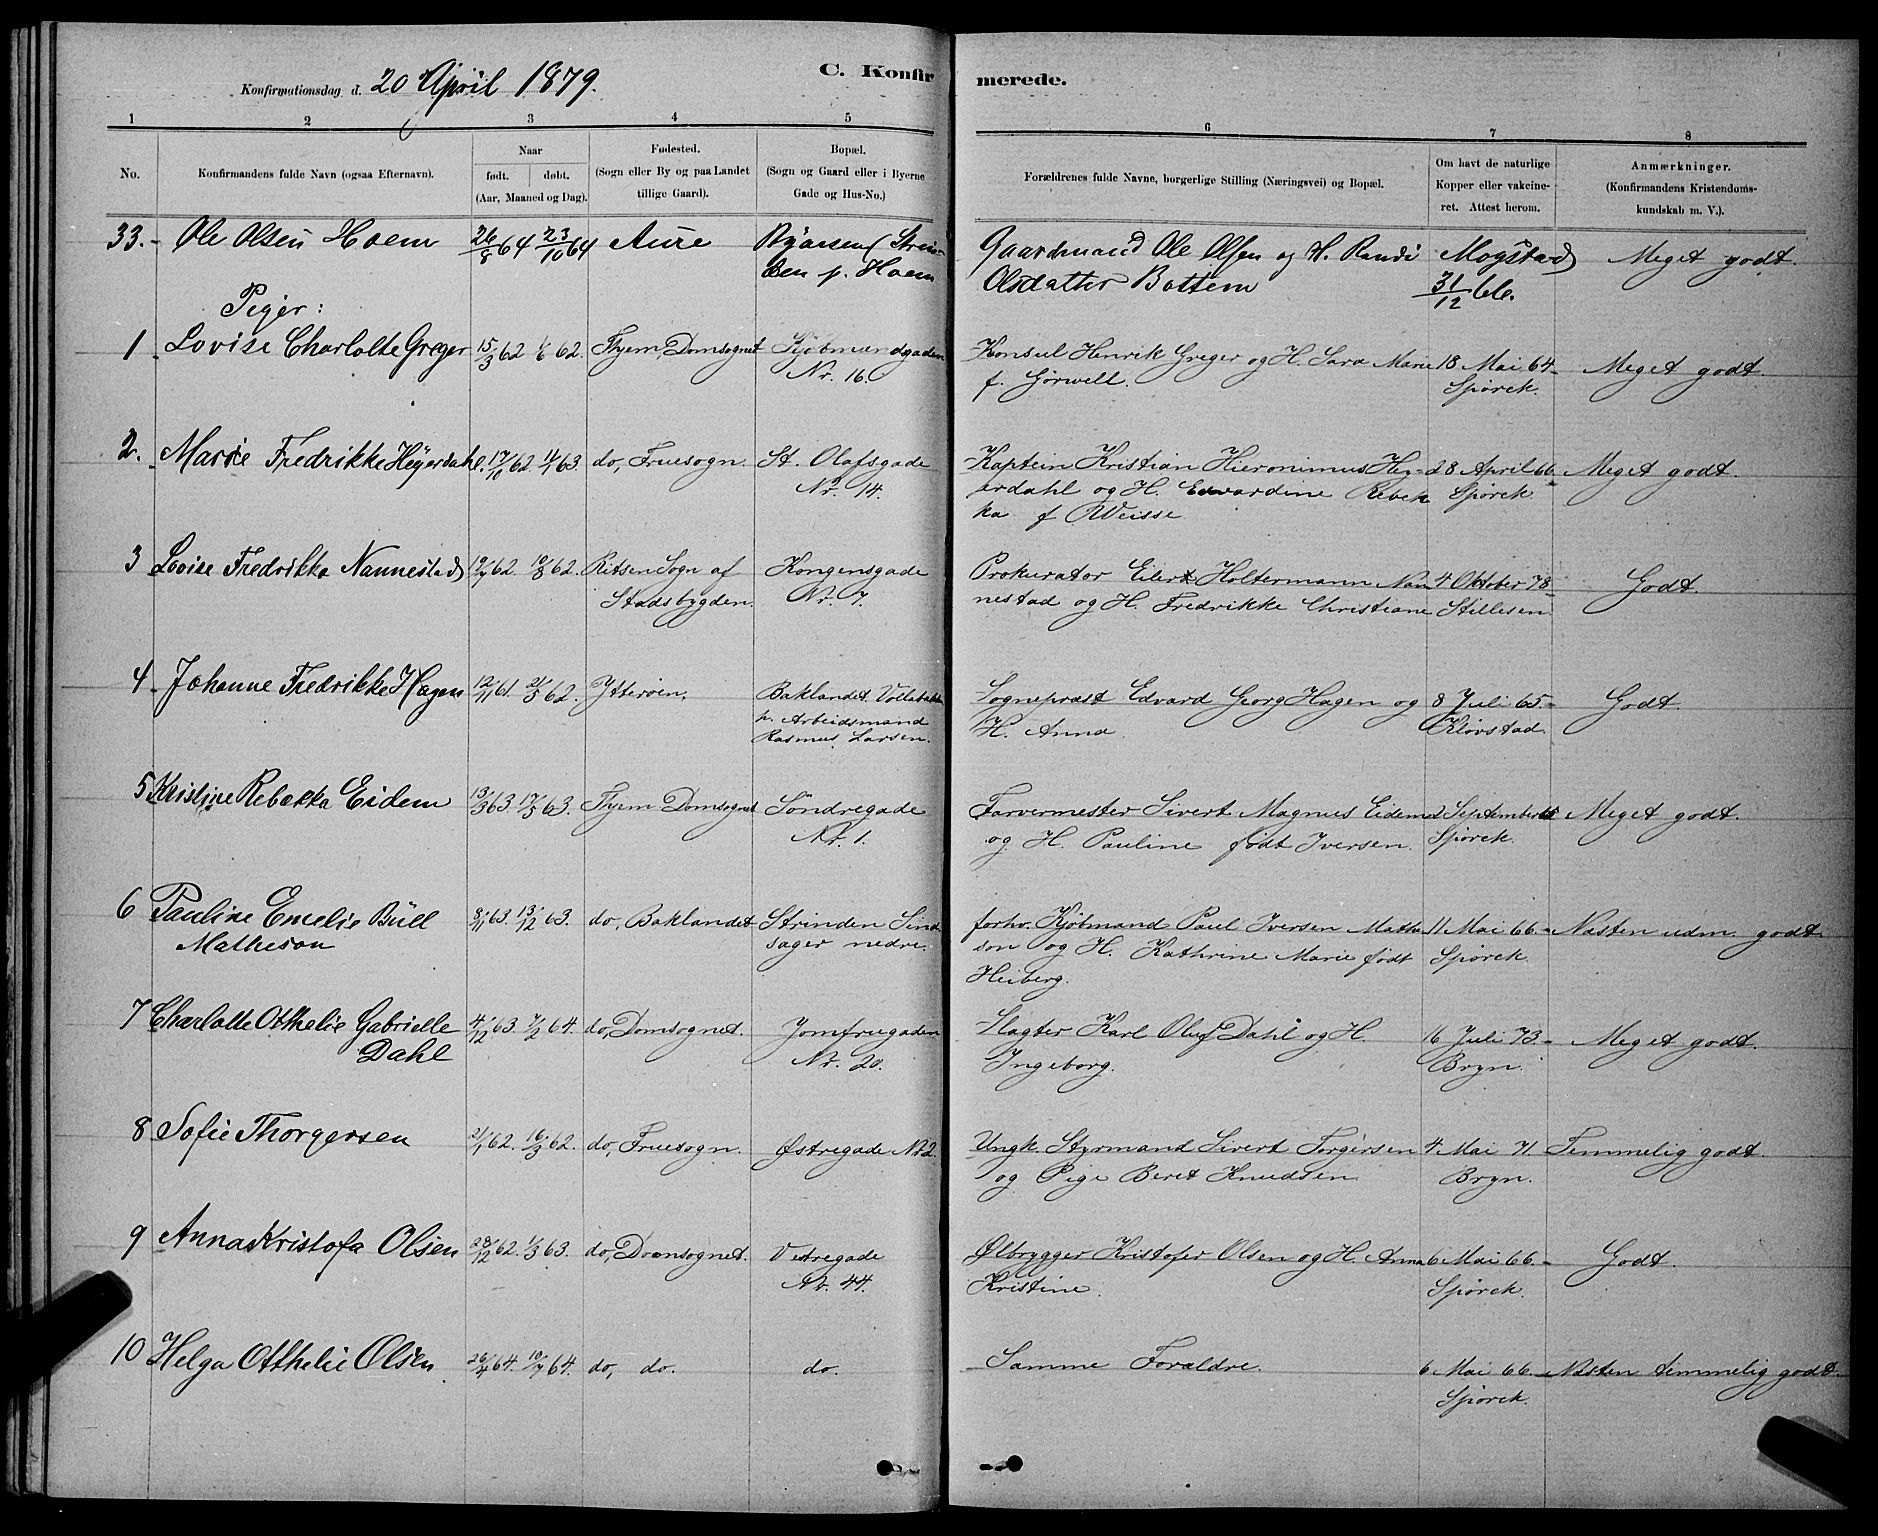 C. Konfirmerede.
Konfirmationsdag d. 20 April 1879.
1 2 3 4 5 6 7 8
No.
Konfirmandens fulde Navn (ogsaa Efternavn).
Naar
født. døbt.
(Aar, Maaned og Dag).
Fødested.
(Sogn eller By og paa Landet
tillige Gaard).
Bopæl.
(Sogn og Gaard eller i Byerne
Gade og Hus-No.)
Forældrenes fulde Navne, borgerlige Stilling (Næringsvei) og Bopæl.
Om havt de naturlige
Kopper eller vakcine-
ret. Attest herom.
Anmærkninger.
(Konfirmandens Kristendoms-
kundskab m. V.).
33. Ole Olsen Hoem 26/8 64 23/10 64 Aure
p. Hoem
Gaardmand Ole Olsen og H. Randi
Olsdatter Bottem
Mogstad
31/12 66.
Meget godt.
Piger:
1 Lovise Charlotte Greger 15/3 62 1/6 62. Thjem, Domsognet Kjøbmandgaden
Nr. 16.
Konsul Henrik Greger og H. Sara Marie
f. Görwell.
18 Mai 64
Spörck.
Meget godt.
2. Marie Fredrikke Heyerdahl. 17/10 62. 14/1 63. do, Fruesogn. St. Olafsgade
Nr. 14.
Kaptein Kristian Hieronimus Hey-
erdahl og H. Edvardine Rebek
ka f Weisse
28 April 66
Spörck
Meget godt.
3 Lovise Fredrikke Nannestad 19/7 62. 19/8 62. Ritsen Sogn af
Stadsbygden.
Kongensgade
Nr. 7.
Prokurator Eilert Holtermann Nan
nestad og H. Fredrikke Christiane
4 Oktober 78
Stillesen
Godt.
4 Johanne Fredrikke Hagen 12/11 61. 21/5 62. Ytterøen.
Baklandet
p. Arbeidsmand
Rasmus Larsen.
Sogneprast Edvard Georg Hagen og
H. Anna
8 Juli 65.
Kløvstad.
Godt.
5 Kristine Rebekka Eidem 13/3 63. 17/5 63. Thjem Domsognet Söndregade
Nr. 1.
Farvermester Sivert Magnus Eidem
og H. Pauline født Iversen.
2 September 65
Spörck.
Meget godt.
6 Pauline Emelie Büll
Matheson
8/11 63. 13/12 63. do, Baklandet Strinden Sind
sager nedre.
forhv. Kjöbmand Paul Iversen Mathe
son og H. Kathrine Marie født
Heiberg.
11 Mai 66
Spörck
Nasten udm. godt
7 Charlotte Othelie Gabrielle
Dahl
4/12 63. 7/2 64. do, Domsognet. Jomfrugaden
Nr. 20.
Slagter Karl Oluf Dahl og H.
Ingeborg.
16 Juli 73
Bryn.
Meget godt.
8 Sofie Thorgersen 21/1 62. 16/3 62. do, Fruesogn. Østregade Nr 2.
Ungk. Styrmand Sivert Torgersen
og Pige Beret Knudsen
4 Mai 71.
Bryn.
Temmelig godt.
9 Anna Kristofa Olsen 28/12 62. 1/3 63. do, Domsognet. Vestregade
Nr. 44.
Ølbrygger Kristofer Olsen og H. Anna
Kristine.
6 Mai 66.
Spörck.
Godt.
10 Helga Othelie Olsen 26/4 64. 10/7 64. do, do. do.
Samme Foraldre.
6 Mai 66.
Spörck.
Nasten temmelig godt.